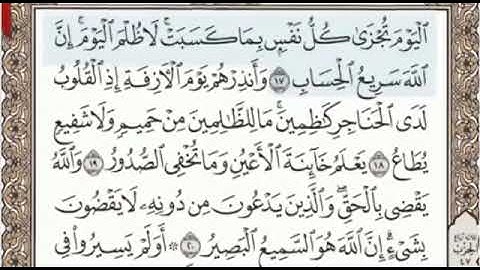 ٱلْيَوْمَ تُجْزَىٰ كُلُّ نَفْسٍۭ بِمَا كَسَبَتْ ۚ لَا ظُلْمَ ٱلْيَوْمَ ۚ إِنَّ
ٱللَّهَ سَرِيعُ ٱلْحِسَابِ ١٧ وَأَنذِرْهُمْ يَوْمَ ٱلْأَزِفَةِ إِذِ ٱلْقُلُوبُ
لَدَى ٱلْحَنَاجِرِ كَٰظِمِينَ ۚ مَا لِلظَّٰلِمِينَ مِنْ حَمِيمٍ وَلَا شَفِيعٍ
يُطَاعُ ١٨ يَعْلَمُ خَآئِنَةَ ٱلْأَعْيُنِ وَمَا تُخْفِى ٱلصُّدُورُ ١٩ وَٱللَّهُ
يَقْضِى بِٱلْحَقِّ ۖ وَٱلَّذِينَ يَدْعُونَ مِن دُونِهِۦ لَا يَقْضُونَ
بِشَىْءٍ ۗ إِنَّ ٱللَّهَ هُوَ ٱلسَّمِيعُ ٱلْبَصِيرُ ٢٠ ۞ أَوَلَمْ يَسِيرُوا۟ فِى
الحزب
٤٧